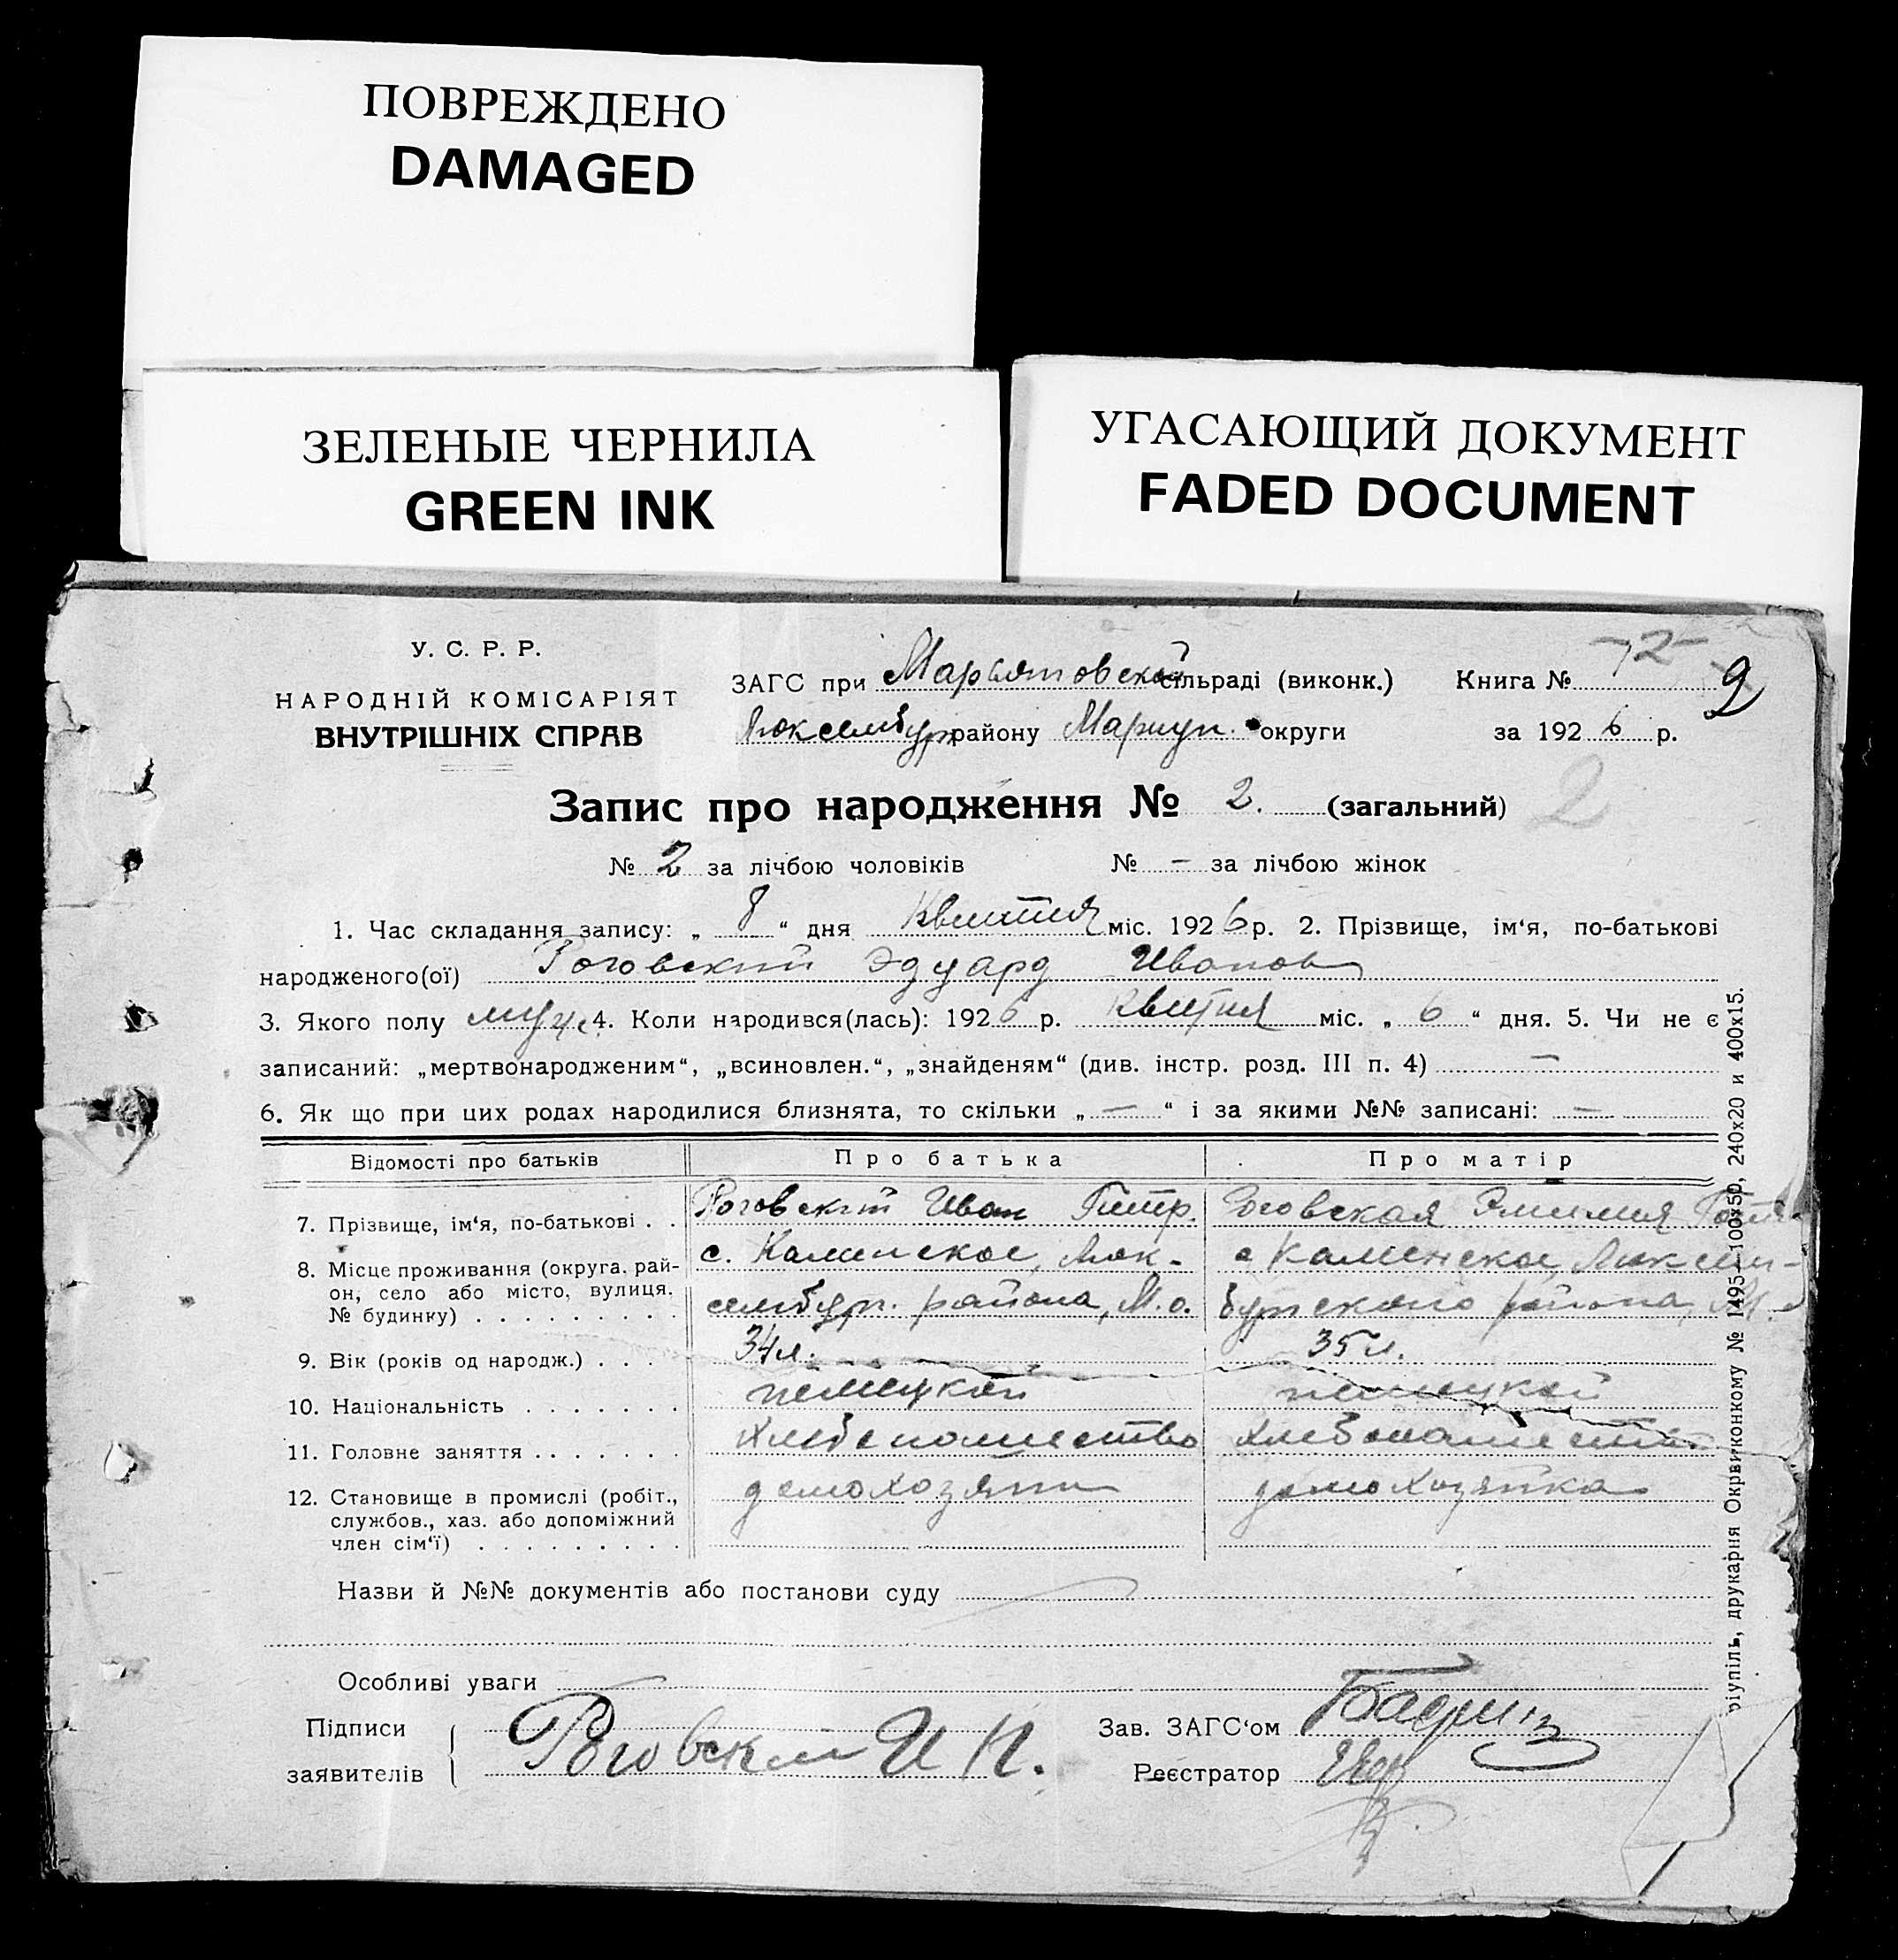 ПОВРЕЖДЕНО
DAMAGED
ЗЕЛЕНЫЕ ЧЕРНИЛА
GREEN INK
УГАСАЮЩИЙ ДОКУМЕНТ
FADED DOCUMENT
У. С. Р. Р.
НАРОДНІЙ КОМІСАРІЯТ
ВНУТРІШНІХ СПРАВ
ЗАГС при сільраді (виконк.) Книга № 2
Люксембург району Мариуп. округи за 1926 р.
Запис про народження № 2. (загальний) 2
№ 2 за лічбою чоловіків № — за лічбою жінок
1. Час складання запису: „ 8 “ дня Квитня міс. 1926 р. 2. Прізвище, ім‘я, по-батькові
народженого(ої) Роговский Эдуард Иванов
3. Якого полу муж. 4. Коли народився(лась): 1926 р. Квитня міс. „ 6 “ дня. 5. Чи не є
записаний: „мертвонародженим“, „всиновлен.“, „знайденям“ (див. інстр. розд. III п. 4) —
6. Як що при цих родах народилися близнята, то скільки „ — “ і за якими №№ записані: —
Відомості про батьків Про батька Про матір
7. Прізвище, ім‘я, по-батькові . . Роговский Иван Петр. Роговская Эмилия
8. Місце проживання (округа, рай-
он, село або місто, вулиця,
№ будинку) . . . . . . . . .
с. Каменское, Люк-
сембург. района, М.о.
с Каменское, Люксем-
бургского района, М.о
9. Вік (років од народж.) . . . 34 л. 35 л.
10. Національність . . . . . . . немецкой немецкой
11. Головне заняття . . . . . . . хлебопашество хлебопашество
12. Становище в промислі (робіт.,
службов., хаз. або допоміжний
член сім‘ї) . . . . . . . . .
домохозяин домохозяйка
Назви й №№ документів або постанови суду —
Особливі уваги
Підписи
заявителів
Роговский И П.
Зав. ЗАГС‘ом
Реєстратор
ріупіль, друкарня Окрвиконкому № 1495—100х50, 240х20 и 400х15.